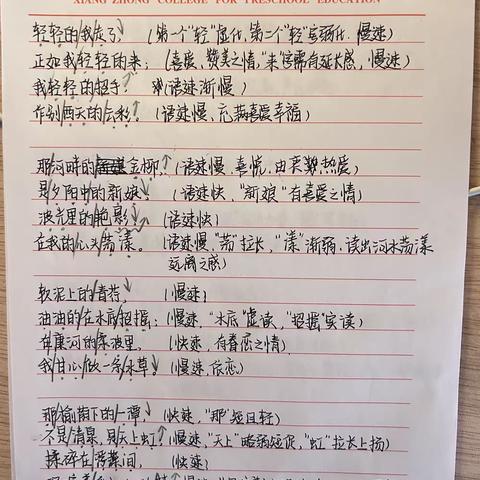 XIANG ZHONG COLLEGE FOR PRESCHOOL EDUCATION
轻轻的我走了 (第一个"轻"虚化,第二个"轻"实弱化,慢速)
正如我轻轻的来; (喜爱、赞美之情,"来"字需有延长感,慢速)
我轻轻的招手? (语速渐慢)
作别西天的云彩。 (语速慢、充满喜爱幸福)
那河畔的金柳, (语速慢、喜悦、由衷 热爱)
是夕阳中的新娘; (语速快,"新娘"有喜爱之情)
波光里的艳影 (语速快)
在我的心头荡漾。 (语速慢,"荡"拉长,"漾"渐弱,读出河水荡漾
远离之感)
软泥上的青荇, (慢速)
油油的在水底招摇; (慢速,"水底"虚读,"招摇"实读)
在康河的柔波里, (快速,有眷恋之情)
我甘心做一条水草! (慢速、依恋)
那榆荫下的一潭, (快速,"那"短且轻)
不是清泉,是天上虹? (慢速,"天上"略弱短促,"虹"拉长上扬)
揉碎在浮藻间, (快速)